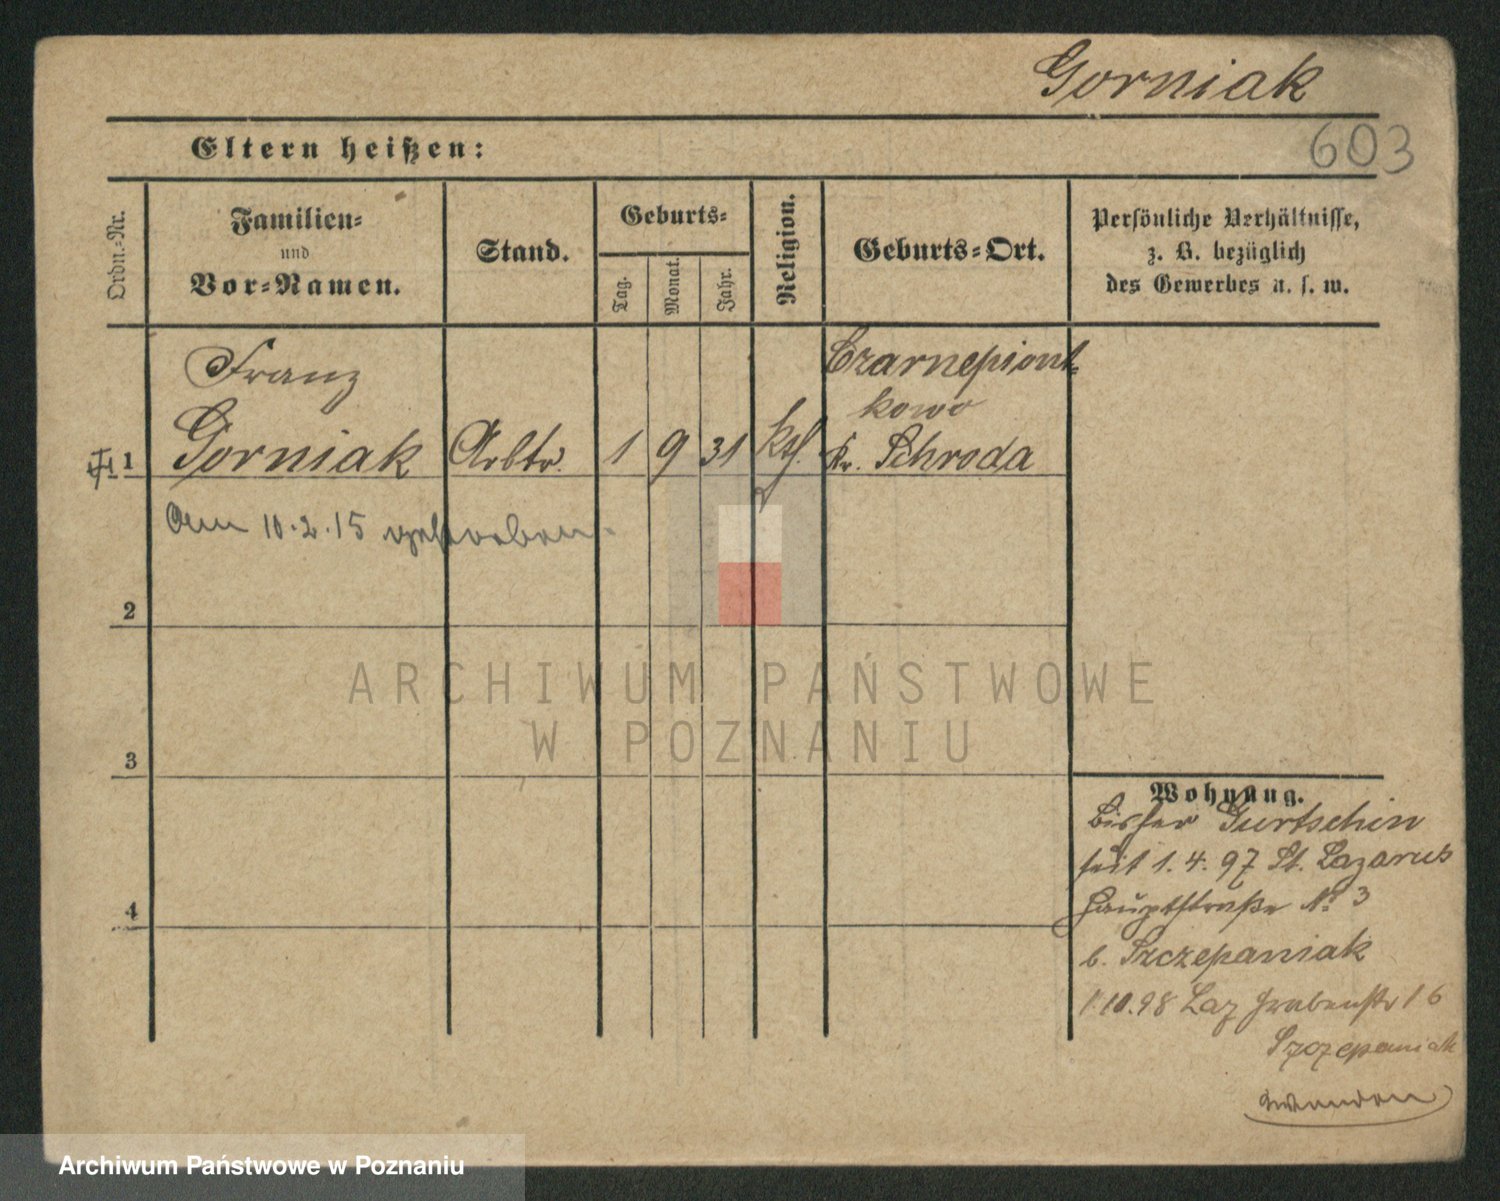 Gorniak
603
Eltern heißen:
Ordn.-Nr.
Familien-
und
Vor-Namen.
Stand.
Geburts-
Tag.
Monat.
Jahr.
Religion.
Geburts-Ort.
Persönliche Verhältnisse,
z. B. bezüglich
des Gewerbes u. s. w.
1
Franz
Gorniak
Arbtr.
1
9
31
kth.
Czarnepiont-
kowo
Kr. Schroda
Am 10.2.15 gestorben.
2
3
4
Wohnung.
bisher Gurtschin
seit 1.4.97 St. Lazarus
Hauptstraße No 3
b. Szczepaniak
1.10.98 Laz Grabenstr 16
Szczepaniak
ARCHIWUM PAŃSTWOWE
W POZNANIU
Archiwum Państwowe w Poznaniu